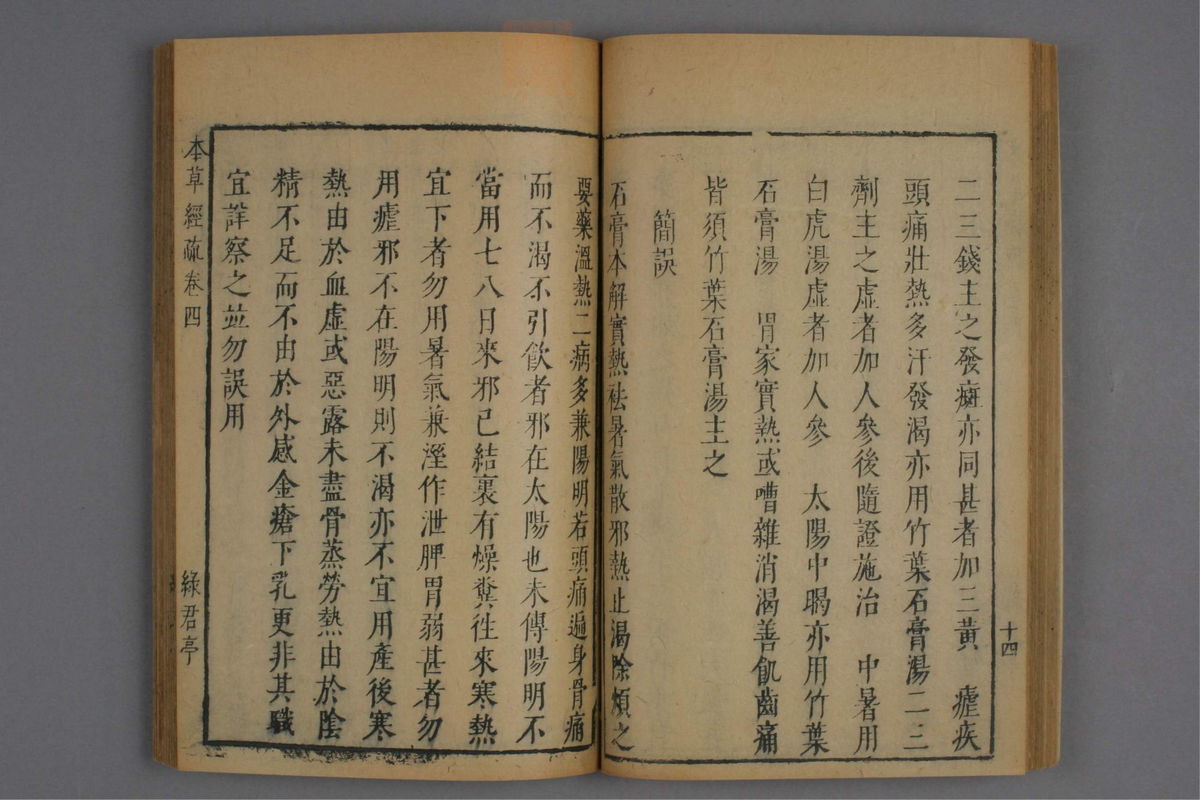 二三錢主之發癍亦同甚者加三黃　瘧疾
頭痛壯熱多汗發渴亦用竹葉石膏湯二三
劑主之虛者加人參後隨證施治　中暑用
白虎湯虛者加人參　太陽中暍亦用竹葉
石膏湯　胃家實熱或嘈雜消渴善飢齒痛
皆須竹葉石膏湯主之
簡誤
石膏本解實熱祛暑氣散邪熱止渴除煩之
十四
要藥溫熱二病多兼陽明若頭痛遍身骨痛
而不渴不引飲者邪在太陽也未傳陽明不
當用七八日來邪已結裏有燥糞徃來寒熱
宜下者勿用暑氣兼溼作泄脾胃弱甚者勿
用瘧邪不在陽明則不渴亦不宜用產後寒
熱由於血虛或惡露未盡骨蒸勞熱由於陰
精不足而不由於外感金瘡下乳更非其職
宜詳察之並勿誤用
本草經疏卷四
綠君亭